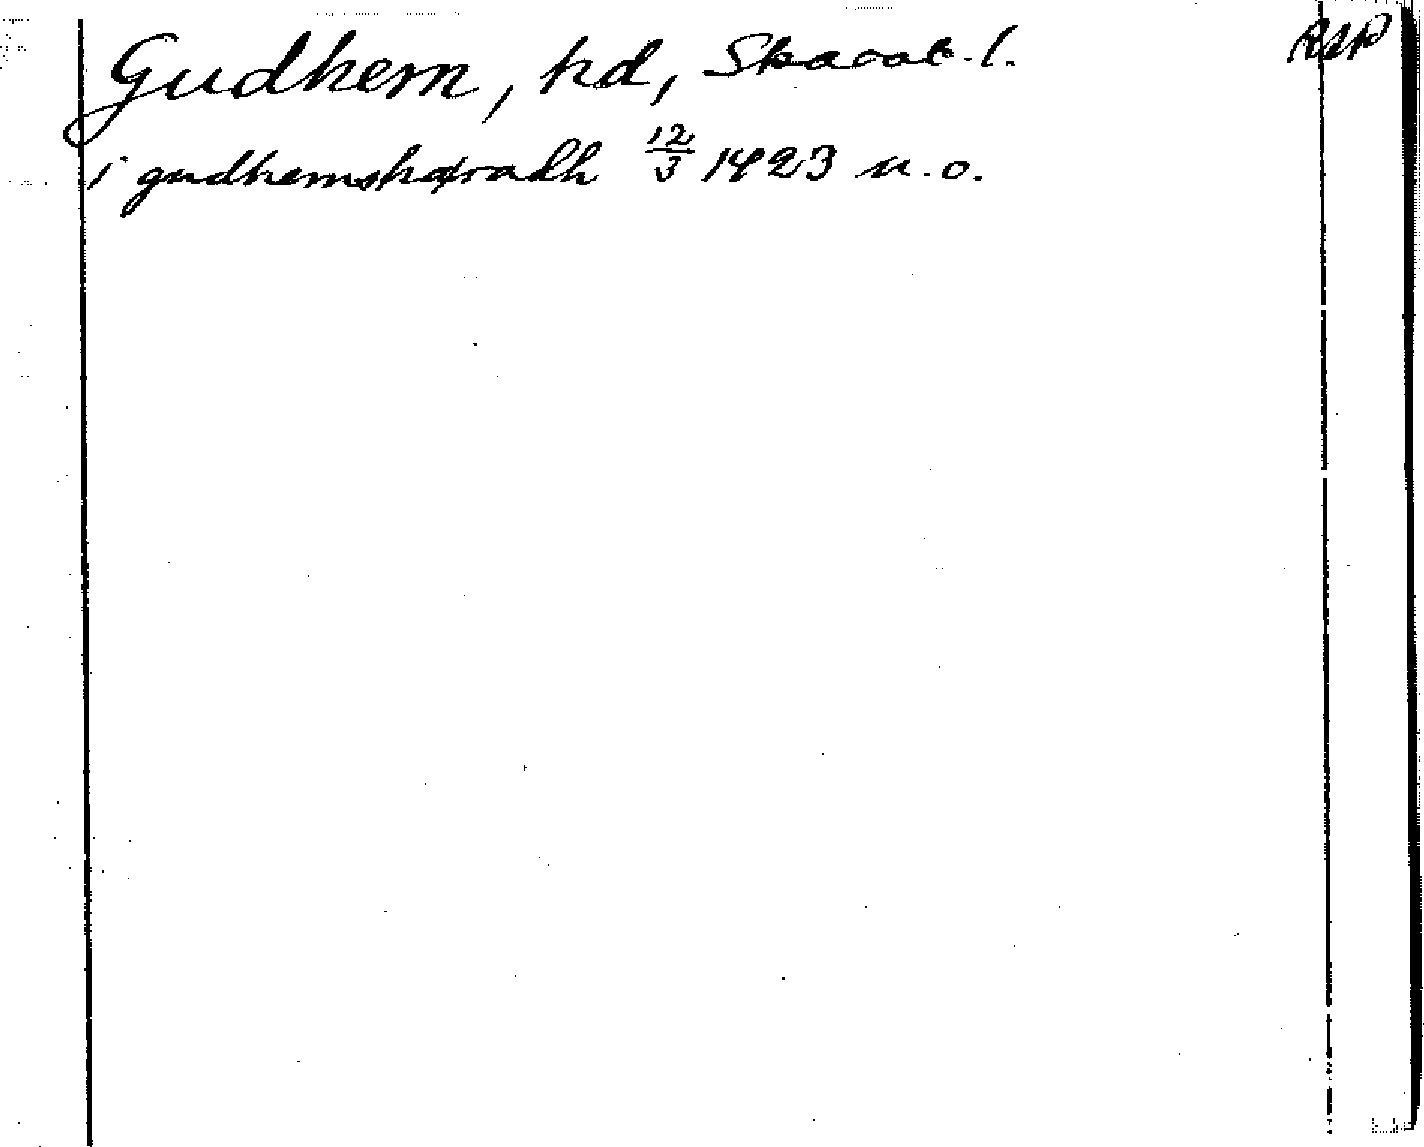 Gudhem, hd, Skarab. l. RAP
i gudhemshæradh 12/3 1423 u. o.